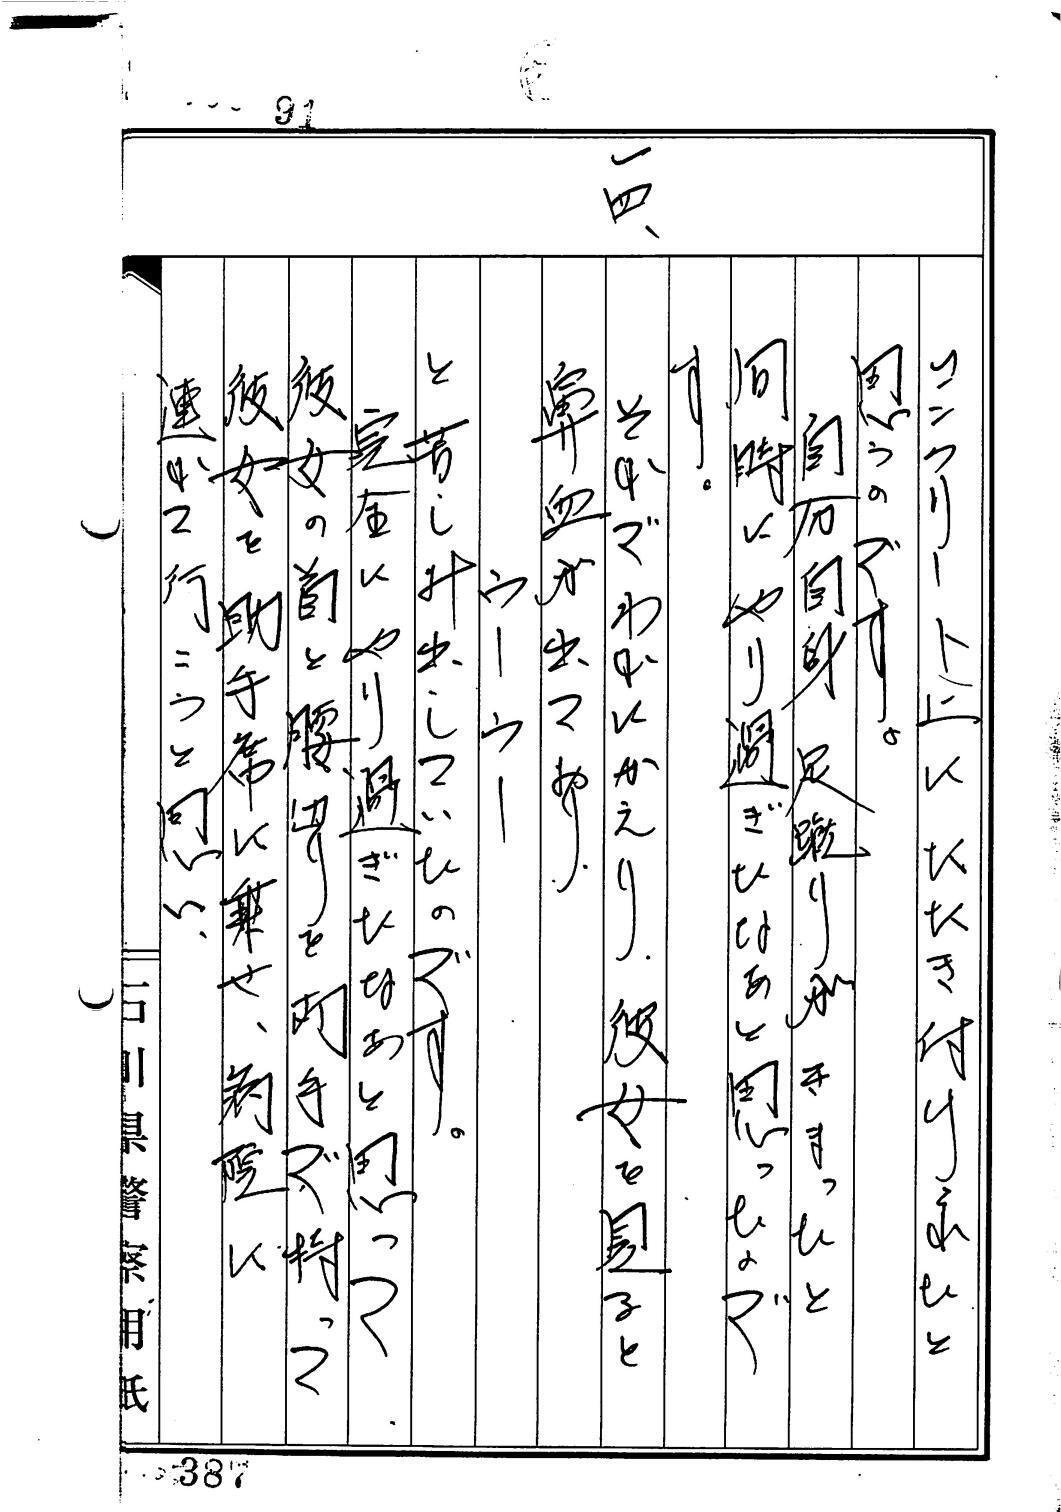 91
コンクリート上にたたき付けられたと
思うのです。
自分自身 足蹴りがきまったと
同時にやり過ぎたなあと思ったので
す。
一四、
それでわれにかえり、彼女を見ると
鼻血が出ており、
ウーウー
と苦し叫出していたのです。
完全にやり過ぎたなあと思って、
彼女の首と腰辺りを両手で持って
彼女を助手席に乗せ、病院に
連れて行こうと思い、
石川県警察用紙
387